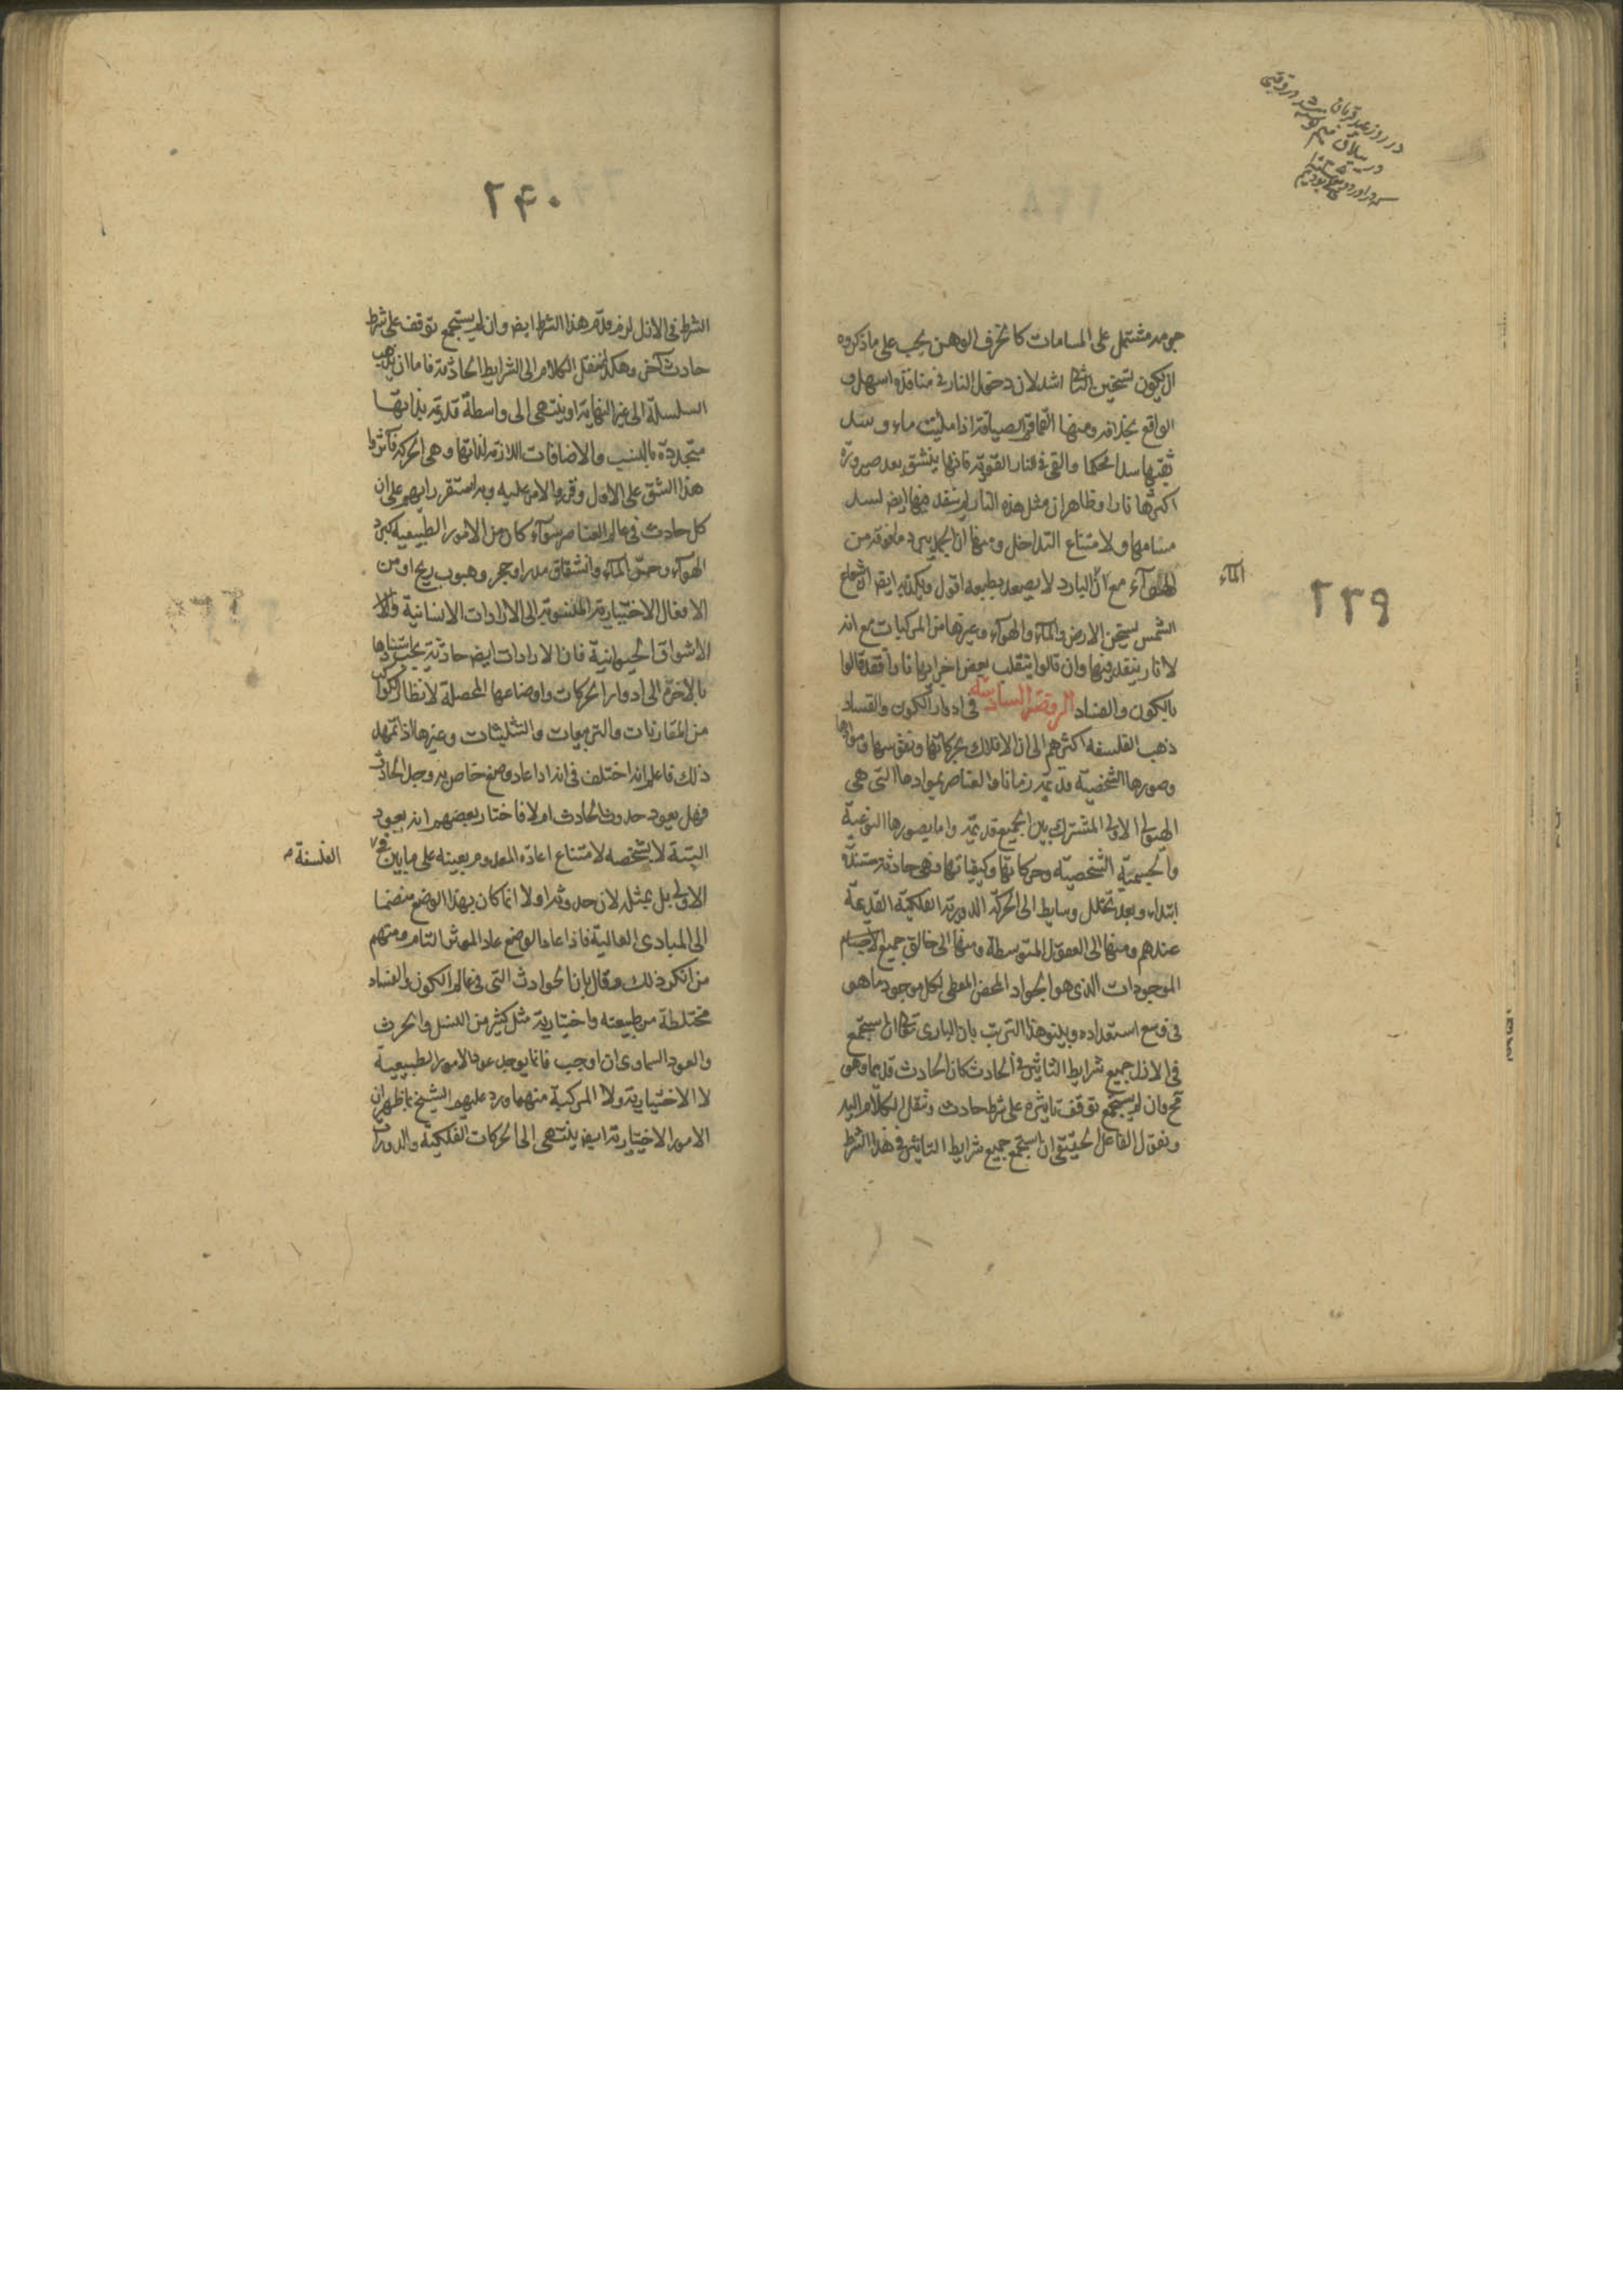 در روز عید قربان
در ییلاق
٢٣٩
جرمه مشتمل على المسامات كالخزف الوهن يجب على ماذكروه
ان يكون تسخين النار اشد لان دخول النار فى منافذه اسهل و
الواقع بخلافه ومنها القماقم الصياحة اذا مليت ماء و سد
ثقبها سدا محكما والقى فى النار القوية فانها ينشق بعد صيرورة
اكثرها نارا و ظاهر ان مثل هذه النار لم ينفذ فيها ايض لسد
مسامها ولامتناع التداخل ومنها ان الجمد يبرد ما فوقه من
الهوآء مع ان البارد لا يصعد بطبعه اقول ويكذبه ايض ان شعاع
المآء
الشمس يسخن الارض والمآء والهوآء وغيرها من المركبات مع انه
لا نار ينفذ فيها وان قالوا ينقلب بعض اجزايها نارا فقد قالوا
بالكون والفساد الروضة السادسة فى ادوار الكون والفساد
ذهب الفلسفه اكثرهم الى ان الافلاك بحركاتها ونفوسها وموادها
وصورها الشخصية قديمة زمانا والعناصر بموادها التى هى
الهيولى الاولى المشترك بين الجميع قديمة واما بصورها النوعية
والجسمية الشخصيته وحركاتها وكيفياتها فهى حادثة مستندة
ابتداء وبعد تخلل وسايط الى الحركة الدورية الفلكية القديمة
عندهم ومنها الى العقول المتوسطة ومنها الى خالق جميع الاجسام
الموجودات الذى هو الجواد المحض المعطى لكل موجود ما هو
فى وسع استعداده وبينوا هذا الترتيب بان البارى تعالى ان استجمع
فى الازل جميع شرايط التاثير فى الحادث كان الحادث قديما وهو
مح وان لم يستجمع توقف تاثيره على شرط حادث وننقل الكلام اليه
ونقول الفاعل الحقيقى ان استجمع جميع شرايط التاثير فى هذا الشرط
٢۴٠
الشرط فى الازل لزم قدم هذا الشرط ايض وان لم يستجمع توقف على شرط
حادث آخر وهكذا ننقل الكلام الى الشرايط الحادثة فاما ان يذهب
السلسلة الى غير النهاية او ينتهى الى واسطة قديمة بذاتها
متجددة بالنسب والاضافات اللازمة لذاتها وهى الحركة فآثروا
هذا الشق على الاول وقرروا الامر عليه وبه استقر رايهم على ان
كل حادث فى عالم العناصر سوآء كان من الامور الطبيعيه كبرد
الهوآء وحر المآء وانشقاق مدر او حجر وهبوب ريح او من
الافعال الاختيارية المنسوبة الى الارادات الانسانية والا
الاشواق الحيوانية فان الارادات ايض حادثة يجب استنادها
بالاخرة الى ادوار الحركات واوضاعها المحصلة لانظار الكواكب
من المقارنات والتربيعات والتثليثات وغيرها اذا تمهد
ذلك فاعلم انه اختلف فى انه اذا عاد وضع خاص به وجد الحادث
فهل يعود حدوث الحادث ام لا فاختار بعضهم انه يعود
البتة لا بشخصه لامتناع اعادة المعدوم بعينه على ما بين فى
الفلسفة
الاولى بل بمثله لان حدوثه اولا انما كان بهذا الوضع منضما
الى المبادى العالية فاذا عاد الوضع عاد المؤثر التام ومنهم
من انكر ذلك وقال بان الحوادث التى فى عالم الكون والفساد
مختلطة من طبيعته واختيارية مثل كثير من النسل والحرث
والعود السماوى ان اوجب فانما يوجد عود الامور الطبيعية
لا الاختيارية ولا المركبة منهما ورد عليهم الشيخ بما ظهر ان
الامور الاختيارية ايض ينتهى الى الحركات الفلكية والدورات